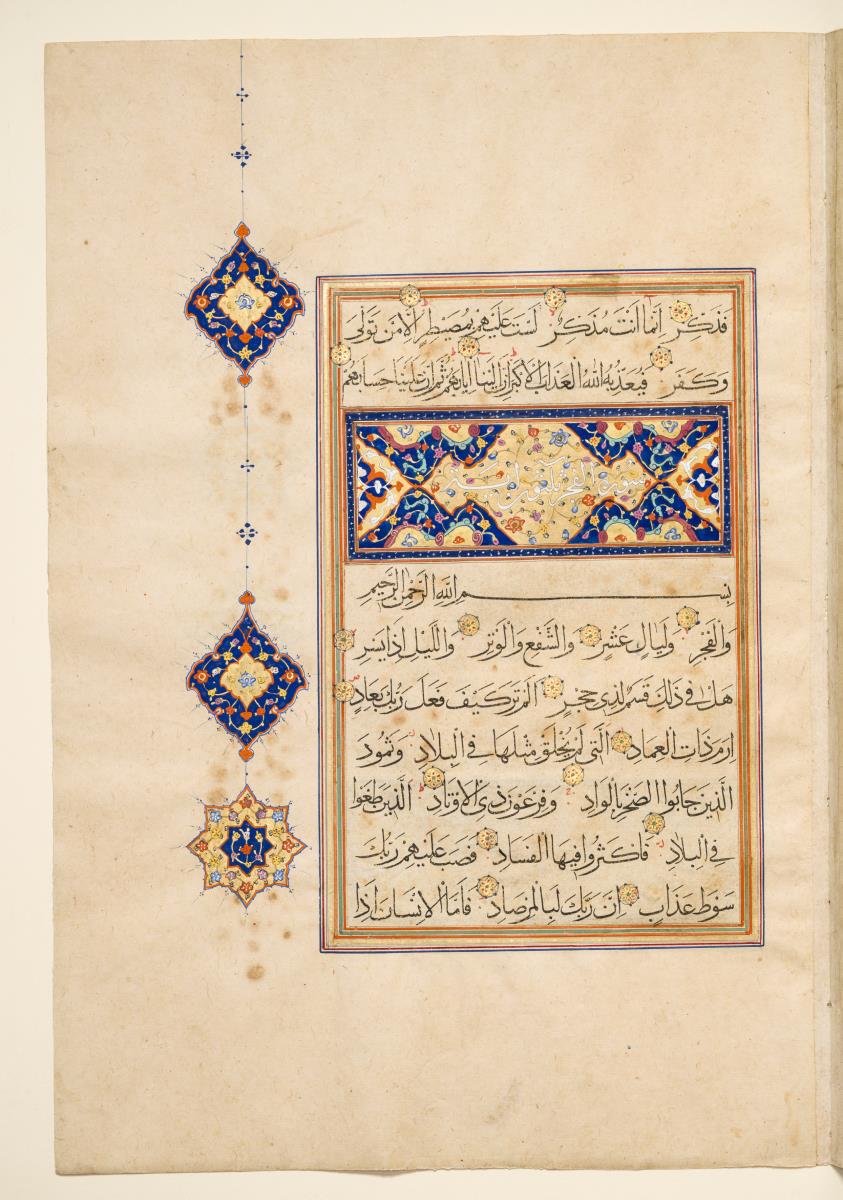 فَذَكِّرْ إِنَّمَا أَنْتَ مُذَكِّرٌ لَسْتَ عَلَيْهِمْ بِمُصَيْطِرٍ إِلَّا مَنْ تَوَلَّى
وَكَفَرَ فَيُعَذِّبُهُ اللَّهُ الْعَذَابَ الْأَكْبَرَ إِنَّ إِلَيْنَا إِيَابَهُمْ ثُمَّ إِنَّ عَلَيْنَا حِسَابَهُمْ
سورة الفجر
بِسْمِ اللَّهِ الرَّحْمٰنِ الرَّحِيمِ
وَالْفَجْرِ وَلَيَالٍ عَشْرٍ وَالشَّفْعِ وَالْوَتْرِ وَاللَّيْلِ إِذَا يَسْرِ
هَلْ فِي ذَلِكَ قَسَمٌ لِذِي حِجْرٍ أَلَمْ تَرَ كَيْفَ فَعَلَ رَبُّكَ بِعَادٍ
إِرَمَ ذَاتِ الْعِمَادِ الَّتِي لَمْ يُخْلَقْ مِثْلُهَا فِي الْبِلَادِ وَثَمُودَ
الَّذِينَ جَابُوا الصَّخْرَ بِالْوَادِ وَفِرْعَوْنَ ذِي الْأَوْتَادِ الَّذِينَ طَغَوْا
فِي الْبِلَادِ فَأَكْثَرُوا فِيهَا الْفَسَادَ فَصَبَّ عَلَيْهِمْ رَبُّكَ
سَوْطَ عَذَابٍ إِنَّ رَبَّكَ لَبِالْمِرْصَادِ فَأَمَّا الْإِنْسَانُ إِذَا